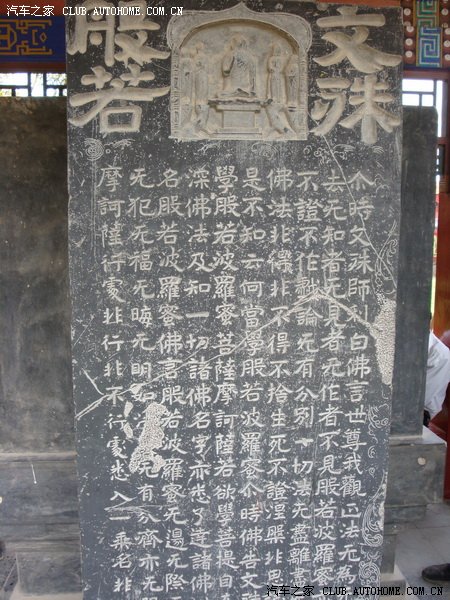 汽车之家 CLUB.AUTOHOME.COM.CN
文殊
般若
尒時文殊師利白佛言世尊我觀正法无為
去无知者无見者无作者不見般若波羅蜜
不證不作戲論无有分別一切法无盡離
佛法非得非不得不捨生死不證涅槃非
是不知云何當學般若波羅蜜尒時佛告文殊
學般若波羅蜜菩薩摩訶薩若欲學菩提自
深佛法及知一切諸佛名字亦悉了達諸佛
名般若波羅蜜佛言般若波羅蜜无邊无際
无犯无福无晦无明如无有分齊亦无
摩訶薩行處非行非不行處悉入一乘名非
汽车之家 CLUB.AUTOHOME.COM.CN